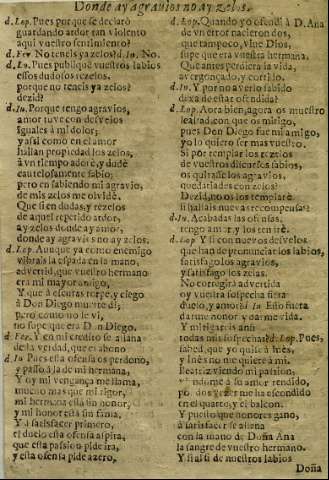 Donde ay agravios no ay zelos.
d. Lop. Pues porque se declarò
guardando ardor tan violento
aqui vuestro sentimiento?
d. Fer. No teneis ya zelos? d. In. No.
d. Lo. Pues publiquè vuestros labios
essos dudosos rezelos.
porque no teneis ya zelos?
dezid?
d. In. Porque tengo agravios,
amor tuve con desvelos
iguales à mi dolor;
y assi como en el amor
hallan propiedad los zelos,
à vn tiempo adorè, y dudè
cautelosamente sabio;
pero en sabiendo mi agravio,
de mis zelos me olvidè.
Que si en dudas, y rezelos
de aquel repetido ardor,
ay zelos donde ay amor,
donde ay agravios no ay zelos.
d. Lop. Aunque ya como enemigo
vibrais la espada en la mano,
advertid, que vuestro hermano
era mi mayor amigo,
Y que à escuras torpe, y ciego
à Don Diego muerte dí;
pero como no le ví,
no supe que era Don Diego.
d. Fer. Y en mi credito se allana
de la verdad, que es abono
d. In. Pues essa ofensa os perdono,
y passo à la de mi hermana,
Y oy mi vengança me llama,
mucho mas que mi rigor,
mi hermana està sin honor,
y mi honor està sin fama,
Y à satisfacer primero,
el duelo essa ofensa aspira,
que esta passion pide ira,
y esta ofensa pide azero,
d. Lop. Quando yo ofendi à D. Ana
de vn error nacieron dos,
que tampoco, vive Dios,
supe que era vuestra hermana.
Que antes perdiera la vida,
avergonçado, y corrido.
d. In. Y por no averlo sabido
dexa de estar ofendida?
d. Lop. Aora bien, agora os muestro
lealtad con que os mitigo,
pues Don Diego fue mi amigo,
yo lo quiero ser mas vuestro.
Si por templar los rezelos
de vuestros discursos sabios,
os quitasse los agravios,
quedariades con zelos?
Dezid, no os los templarè
si hallais nueva recompensa?
d. In. Acabadas las ofensas,
tengo amor, y los tendrè.
d. Lop. Y si con nuevos desvelos
que han de pronunciar los labios,
satisfago los agravios,
y satisfago los zelos.
No corregirà advertida
oy vuestra sospecha fiera
duelo, y amor? d. In Esso fuera
darme honor, y darme vida.
Y mitigareis ansi
todas mis sospechas? d. Lop. Pues,
sabed, que yo quise à Inés,
y Inés no me quiere à mi.
Beatriz viendo mi passion,
y viendome à su amor rendido,
por dos vezes me ha escondido
en el quarto, y el balcon.
Y puesto que honores gano,
à satisfacer se allana
con la mano de Doña Ana
la sangre de vuestro hermano.
Y si assi de nuestros labios
Doña